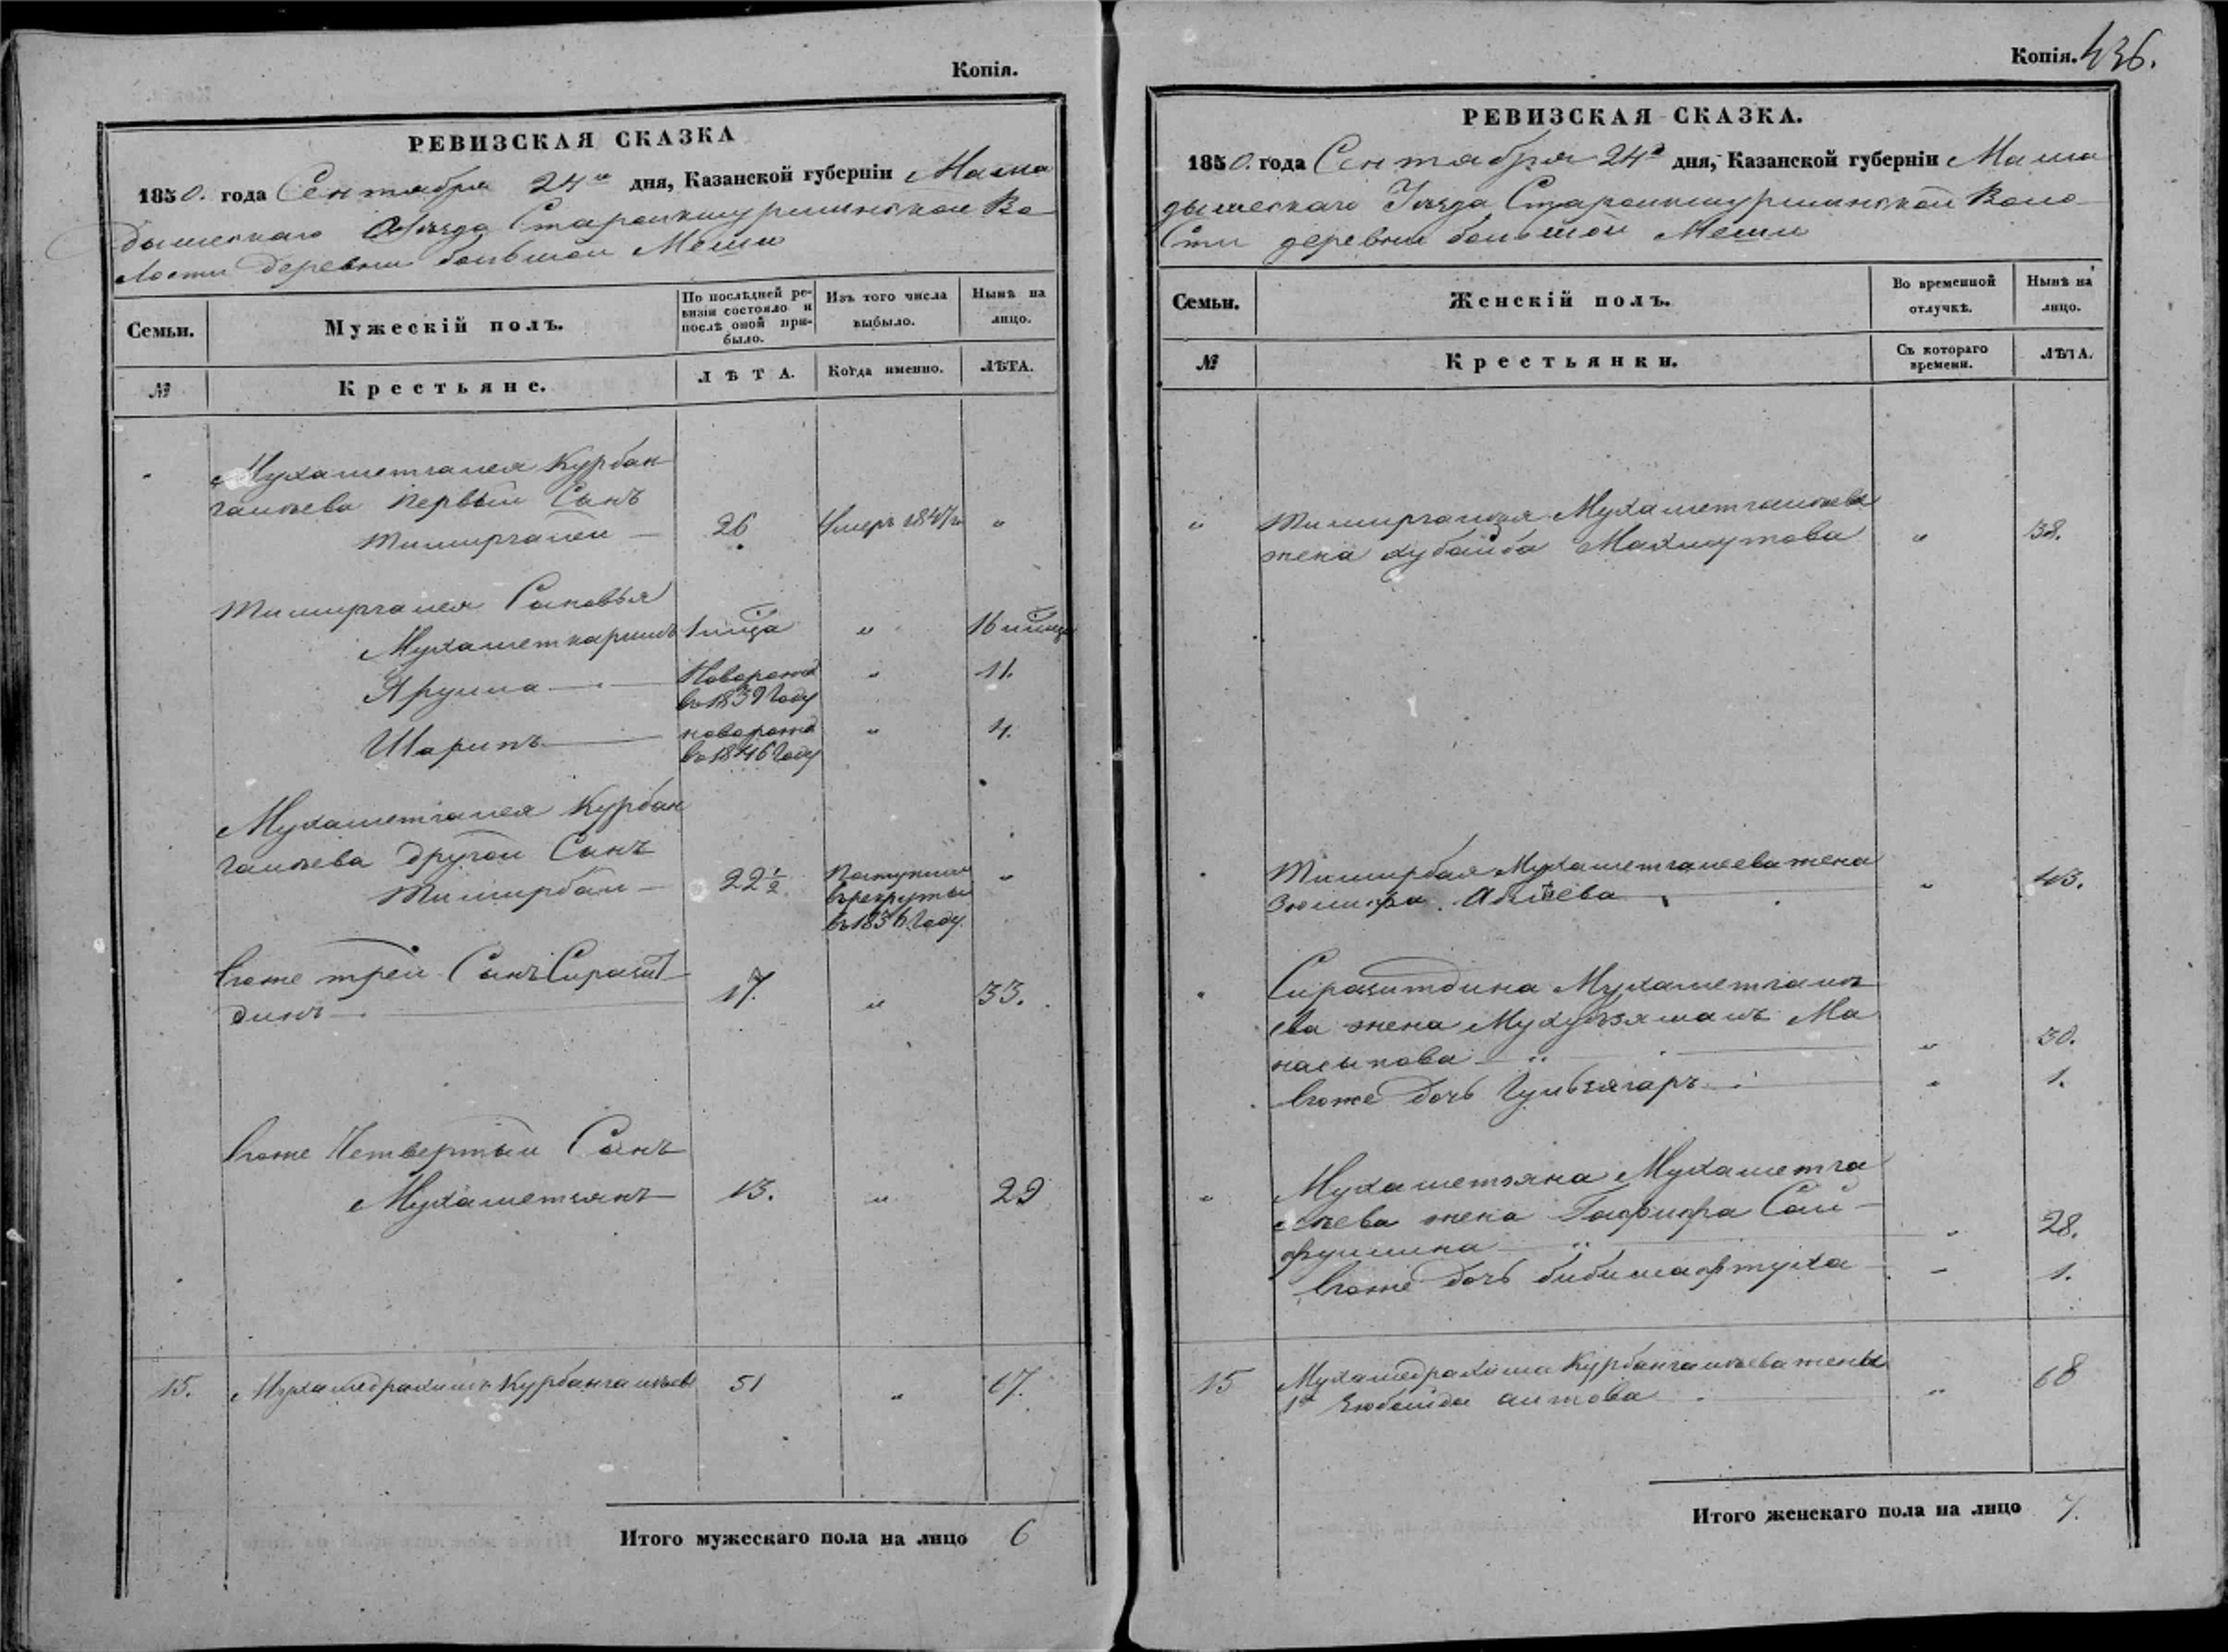 Копія.
РЕВИЗСКАЯ СКАЗКА
1850. года Сентября 24го дня, Казанской губерніи Мама
дышскаго Уѣзда Староикшурминской Во
лости деревни большой Меши
Семьи.
Мужескій полъ.
По послѣдней ре-
визіи состояло и
послѣ оной при-
было.
Изъ того числа
выбыло.
Нынѣ на
лицо.
№
Крестьяне.
ЛѢТА.
Когда именно.
ЛѢТА.
Мухаметгалея Курбан
галѣева первый Сынъ
Тимиргалей 26 Умеръ 1847 "
Тимиргалея Сыновья
Мухаметкаримъ 1 " 16
Ярулла Новорожд " 11.
в 1839 Году
Шарипъ новорожд " 4.
в 1846 Году
Мухаметгалея Курбан
галѣева другой Сынъ
Тимирбай 22 1/2 Поступилъ "
въ рекруты
въ 1836 Году
Егоже трей Сынъ Сиразит
динъ 17. " 33.
Егоже Четвертый Сынъ
Мухаметзянъ 13. " 29
15. Мухамедрахимъ Курбангалѣевъ 51 " 67.
Итого мужескаго пола на лицо 6
Копія. 436.
РЕВИЗСКАЯ СКАЗКА.
1850. года Сентября 24го дня, Казанской губерніи Мама
дышскаго Уѣзда Староикшурминской Воло
сти деревни большой Меши
Семьи.
Женскій полъ.
Во временной
отлучкѣ.
Нынѣ на
лицо.
№
Крестьянки.
Съ котораго
времени.
ЛѢТА.
" Тимиргалея Мухаметгалѣева
жена хубайба Махмутова " 38.
Тимирбая Мухаметгалеева жена
Абліева " 43.
Сиразитдина Мухаметгалѣ
ева жена Ма
насыпова " 30.
Егоже дочь Гульзягаръ " 1.
" Мухаметзяна Мухаметга
лѣева жена Гафифа Сай
фуллина " 28.
Егоже дочь бибимафтуха 1.
15 Мухамедрахима Курбангалѣева жены
1я Зюбайда аитова " 68
Итого женскаго пола на лицо 7.